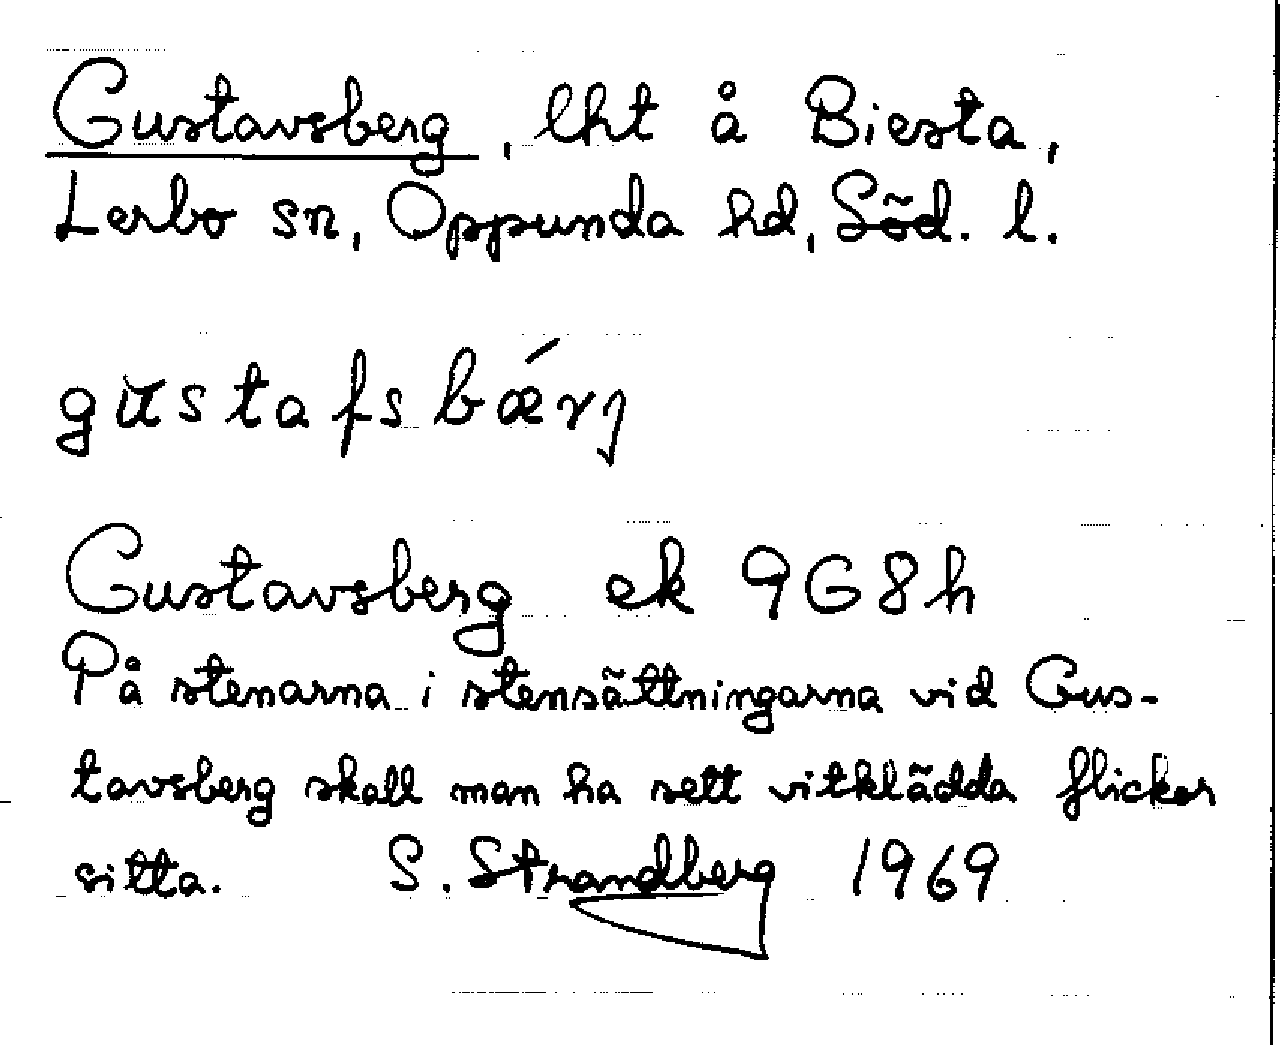 Gustavsberg, lht å Biesta,
Lerbo sn, Oppunda hd, Söd. l.
gustafsbǽrj
Gustavsberg ek 9G8h
På stenarna i stensättningarna vid Gus-
tavsberg skall man ha sett vitklädda flickor
sitta. S. Strandberg 1969